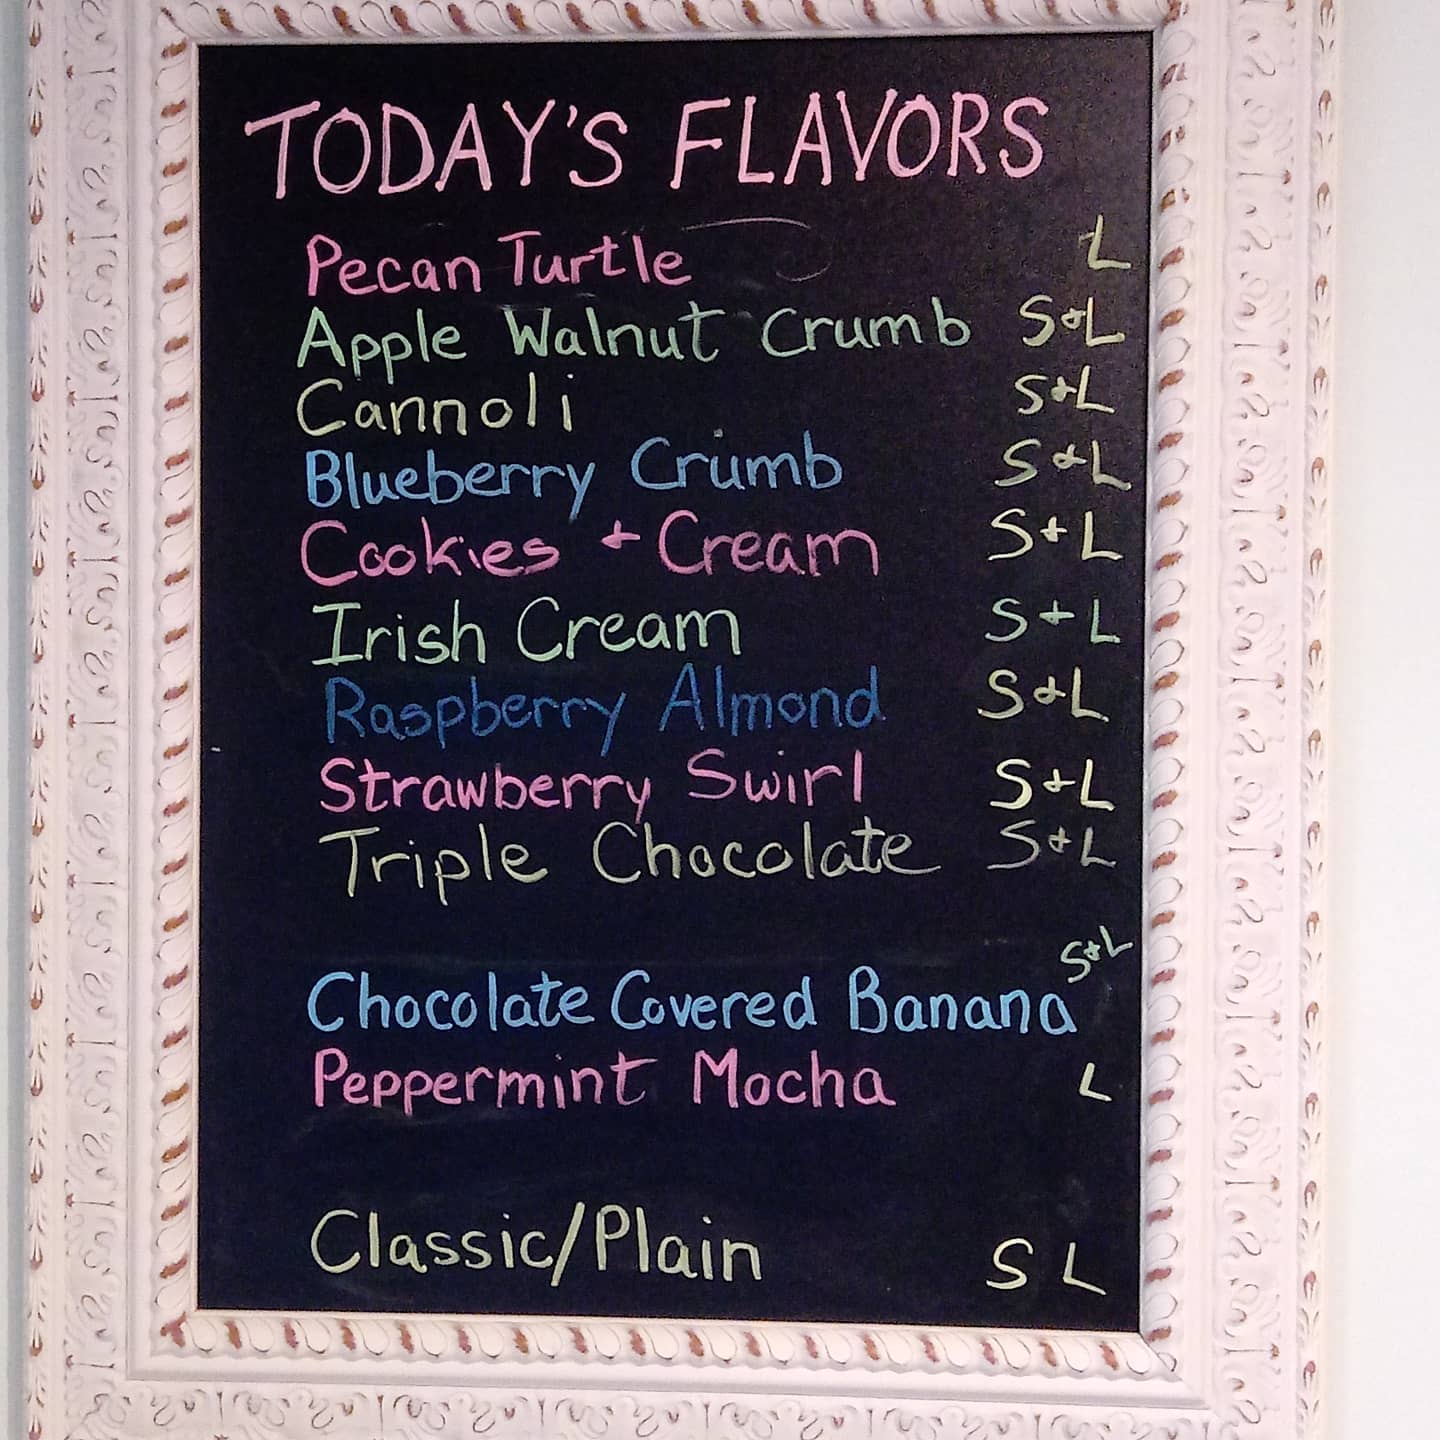 TODAY'S FLAVORS
Pecan Turtle L
Apple Walnut Crumb S+L
Cannoli S+L
Blueberry Crumb S+L
Cookies + Cream S+L
Irish Cream S+L
Raspberry Almond S+L
Strawberry Swirl S+L
Triple Chocolate S+L
Chocolate Covered Banana S+L
Peppermint Mocha L
Classic/Plain S L